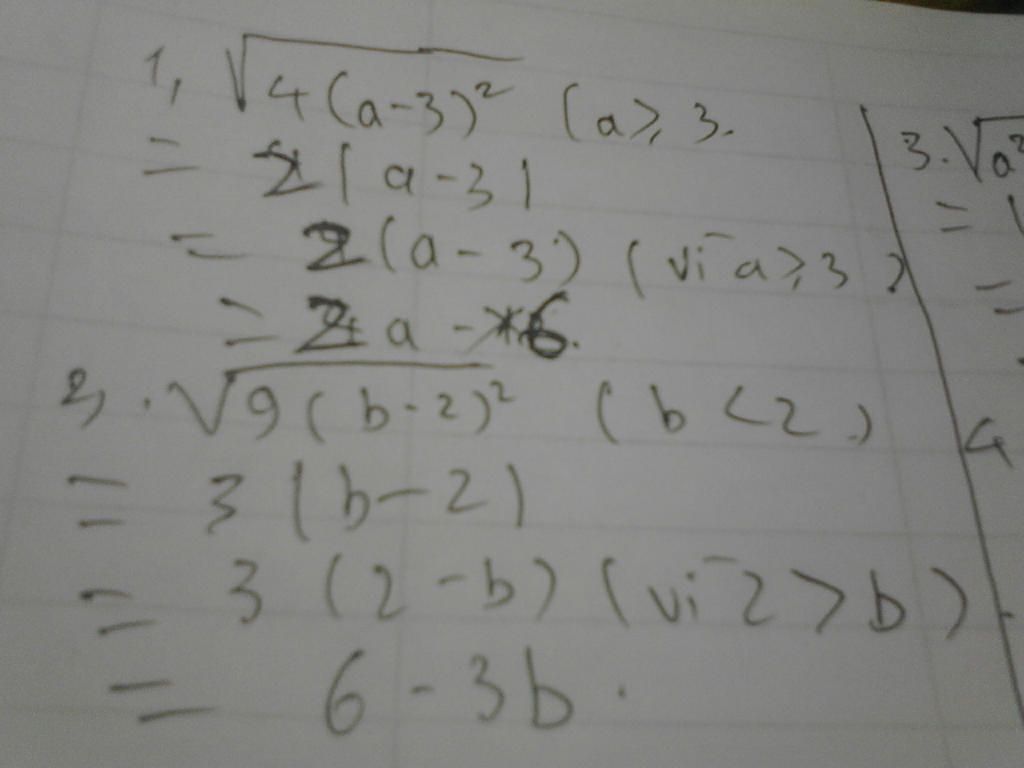 1, √4(a-3)² (a≥3.
= 2|a-3|
= 2(a-3) (vì a≥3)
= 2a - 6.
2, . √9(b-2)² (b<2.)
= 3|b-2|
= 3(2-b) (vì 2>b)
= 6-3b.
3. √a²
=
=
4